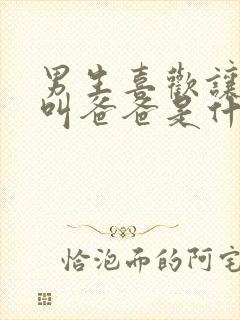 男生喜歡讓
叫爸爸是什
恰泡而的阿宅